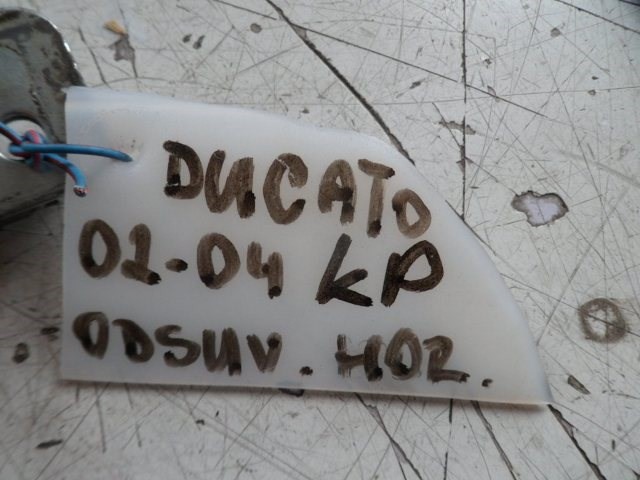 DUCATO
02-04 KP
ODSUV. HOR.